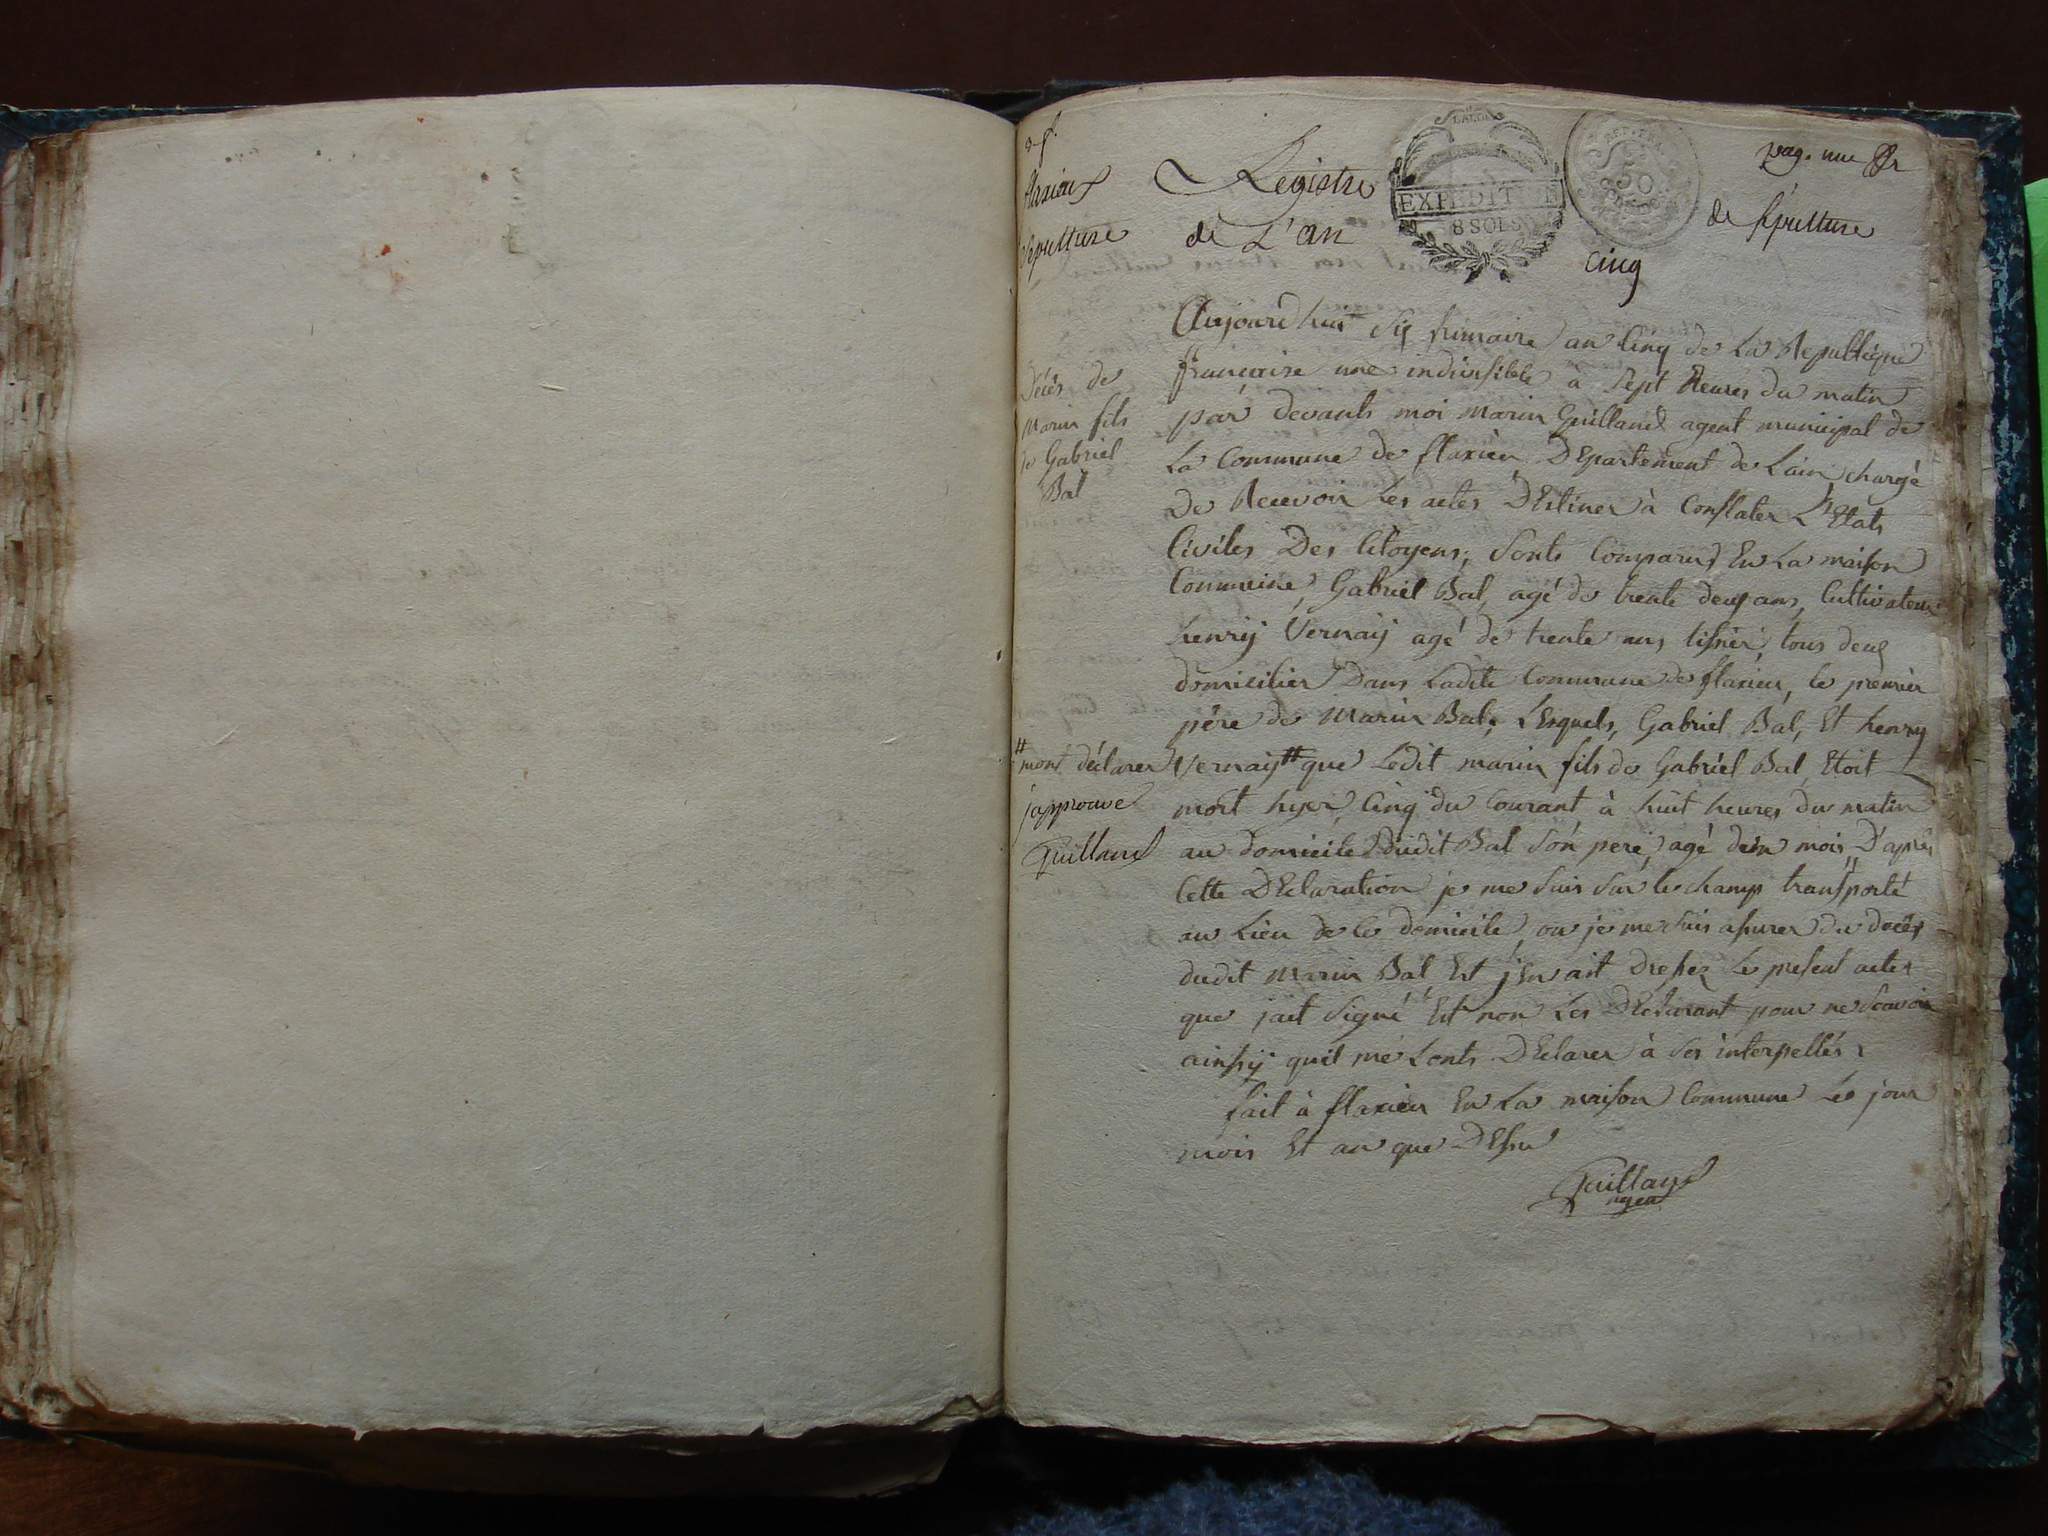 flaxieu
Sepulture
pag. une
Registre
de Sépulture
de L'an
cinq
EXPEDIT
8 SOLS
REP. FRA
50
Décès de
Marin fils
de Gabriel
Bal
Aujourd'huit Six frimaire an Cinq de La Republique
française une indivisible à Sept heures du matin
par devants moi marin Guilland agent municipal de
La Commune de flaxieu DEpartement de Lain chargé
De Recevoir Les actes DEstiner à Constater L'Etats
Civiles Des Citoyens, Sonts Comparus En La maison
Commune, Gabriel Bal, agé de trente deux ans, Cultivateur
henry Vernaij agé de trente ans tisser, tous deux
domicilier Dans Ladite Commune de flaxieu, le premier
père de Marin Bal, LEsquels, Gabriel Bal, Et henry
Vernaij # que Ledit marin fils de Gabriel Bal Etoit
# mont déclarer
j'approuve
Guilland
mort hyer, Cinq du Courant à huit heures du matin
au domicile dudit Bal Son pere, agé d'un mois, D'après
Cette DEclaration je me Suis Sur le champ transporté
au Lieu de Ce domicile, ou je me Suis assurer du décès
dudit Marin Bal, Et j'En ait Dressez Le present acte
que jait Signé Et non Les DEclarant pour ne Scavoir
ainsij quil me Lonts DEclarer à Ses interpellés
fait à flaxieu En La maison Commune Les jour
mois Et an que DEssu
Guilland
agent